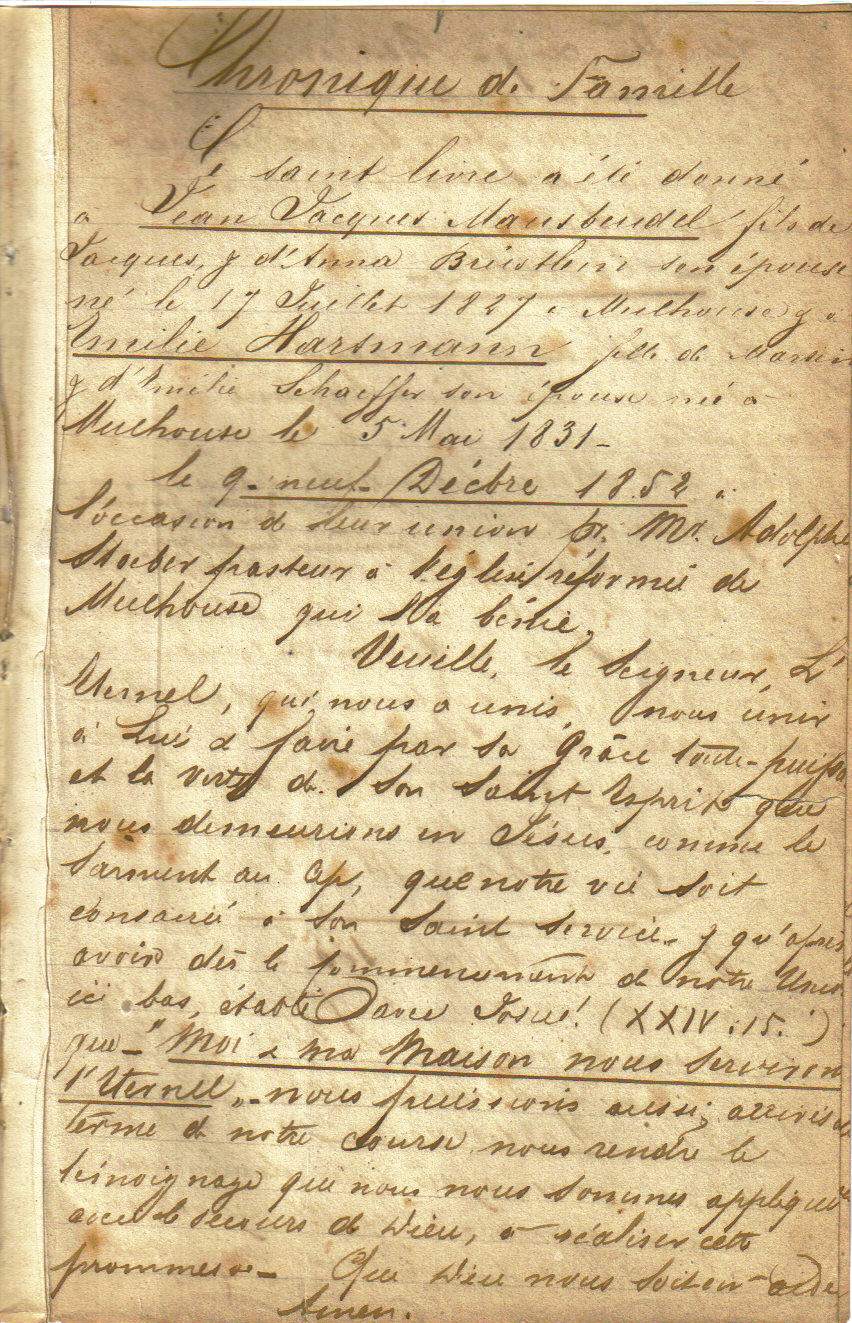 Chronique de Famille
Ce saint livre a été donné
à Jean Jacques Mansbendel fils de
Jacques, & d'Anna Brüstlein son épouse
né le 17 Juillet 1827 à Mulhouse & à
Emilie Hartmann fille de Martin
& d'Emélie Schaeffer son épouse née à
Mulhouse le 5 Mai 1831 -
le 9 - neuf - Décbre 1852 à
l'occasion de leur union pr. Mr. Adolphe
Stoeber pasteur à l'église réformée de
Mulhouse qui l'a bénie.
Veuille, le Seigneur, L'
Eternel, qui nous a unis, nous unir
à Lui & faire par sa Grâce toute-puissa
et la vertu de Son Saint Esprit que
nous demeurions en Jésus, comme le
Sarment au Cep, que notre vie soit
consacrée à Son Saint Service - & qu'après
avoir dès le commencement de notre Union
ici bas, établi avec Josué! (XXIV. 15.)
que - "Moi & ma Maison nous serviron
l'Eternel" - nous puissions aussi, arrivés au
terme de notre course nous rendre le
témoignage que nous nous sommes appliqués
avec le secours de Dieu, à réaliser cette
prommesse - Que Dieu nous soit en aide
Amen.